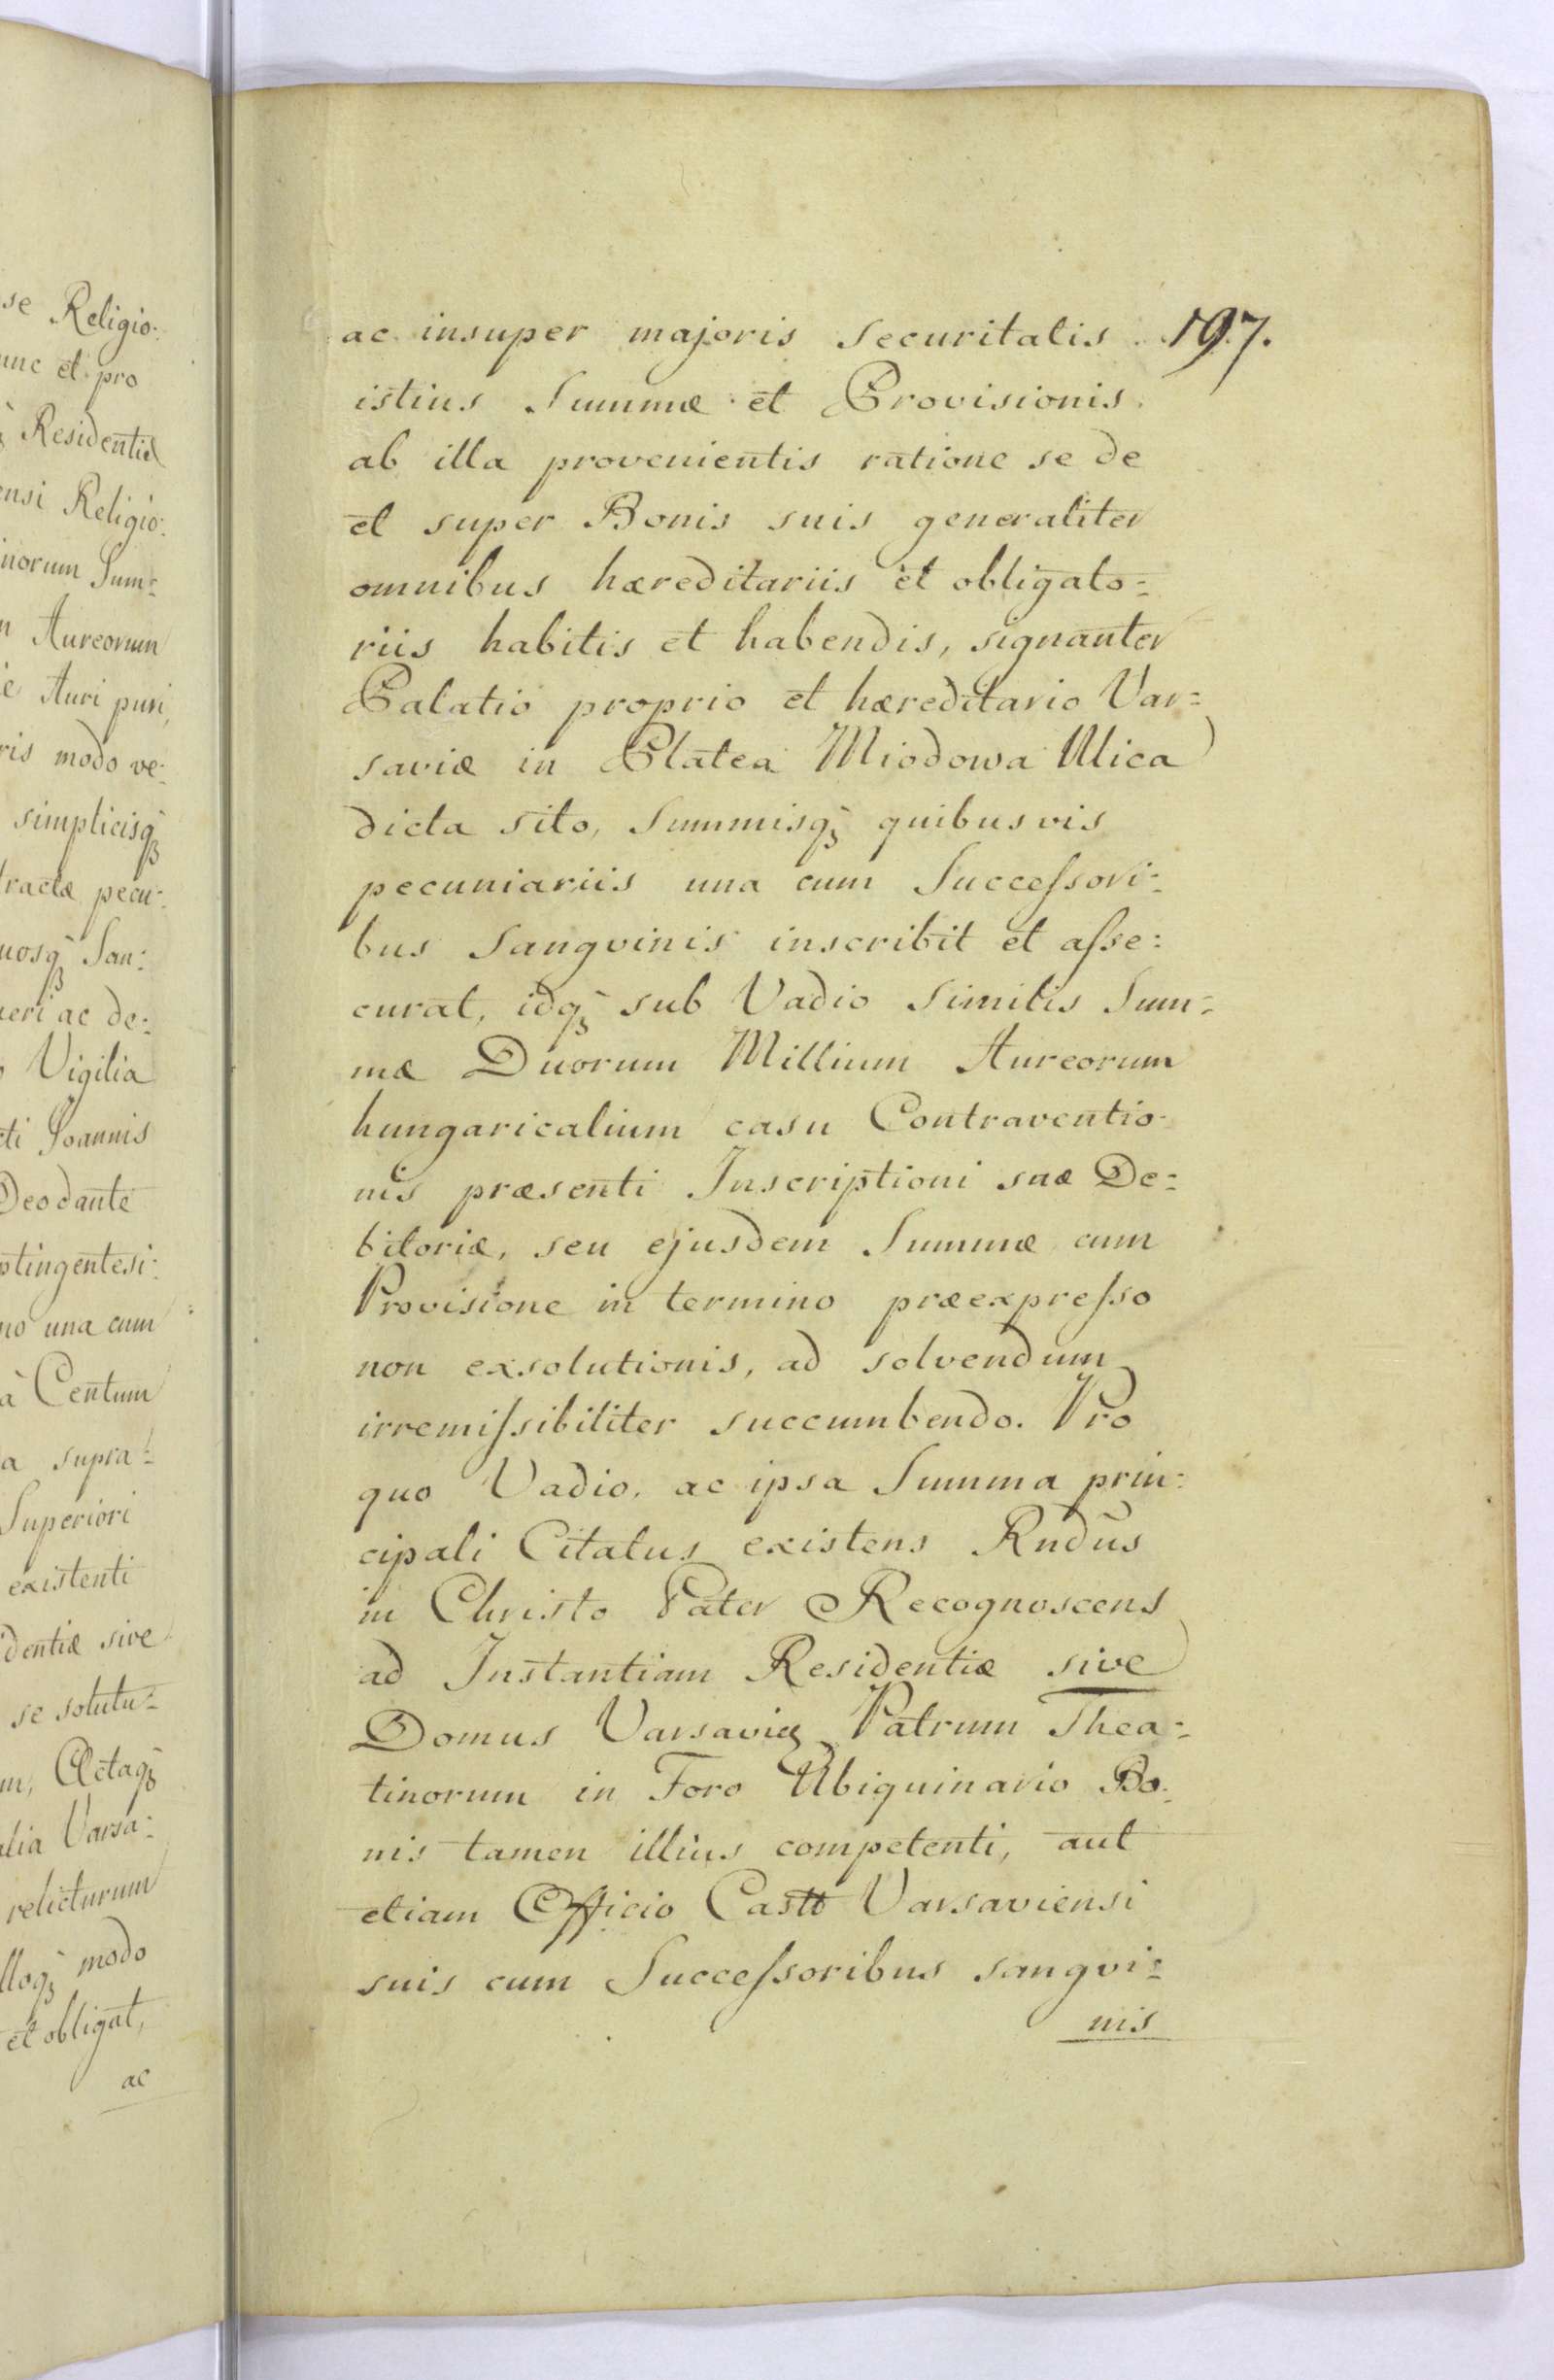 se Religio:
unc et pro
Residentiæ
ensi Religio:
inorum Sum:
Aureorum
Auri puri,
ris modo ve:
simplicisq;
tractæ pecu:
uosq; San:
ueri ac de:
Vigilia
cti Joannis
Deodante
ptingentesi:
no una cum
à Centum
a supra:
Superiori
existenti
identiæ sive
se solutu:
m, Actaq;
alia Varsa:
relicturum
lloq; modo
et obligat,
ac
ac insuper majoris securitatis 197.
istius Summæ et Provisionis
ab illa provenientis ratione se de
et super Bonis suis generaliter
omnibus hæreditariis et obligato=
riis habitis et habendis, signanter
Palatio proprio et hæreditario Var=
saviæ in Platea Miodowa Ulica
dicta sito, Summisq; quibusvis
pecuniariis una cum Successori:
bus Sangvinis inscribit et asse:
curat, idq; sub Vadio Similis Sum=
mæ Duorum Millium Aureorum
hungaricalium casu Contraventio-
nis præsenti Inscriptioni suæ De=
bitoriæ, seu ejusdem Summæ cum
Provisione in termino præexpresso
non exsolutionis, ad solvendum
irremissibiliter succumbendo. Pro
quo Vadio, ac ipsa Summa prin:
cipali Citatus existens Rndus
in Christo Pater Recognoscens
ad Instantiam Residentiæ sive
Domus Varsaviæ Patrum Thea=
tinorum in Foro Ubiquinario Bo:
nis tamen illius competenti, aut
etiam Officio Castt Varsaviensi
suis cum Successoribus sangvi=
nis